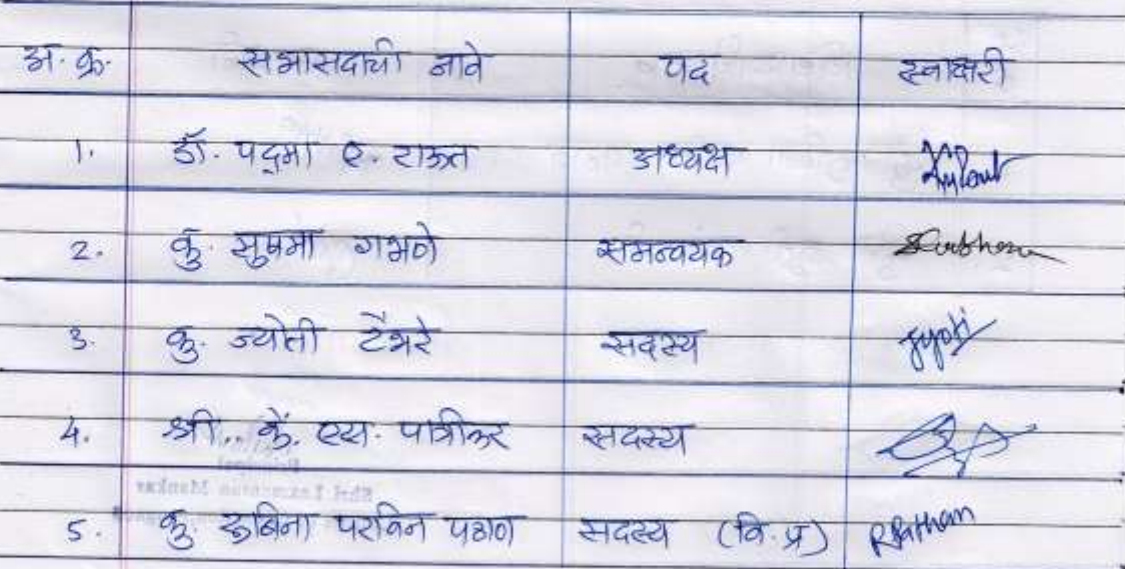 अ. क्र. सभासदाची नावे पद स्वाक्षरी
1. डॉ. पद्मा ए. राऊत अध्यक्ष
2. कु. सुषमा गभणे समन्वयक
3. कु. ज्योती टेंभरे सदस्य Jyoti
4. श्री.. के. एस. पात्रीकर सदस्य
5. कु. रुबिना परविन पठाण सदस्य (वि. प्र) RPathan